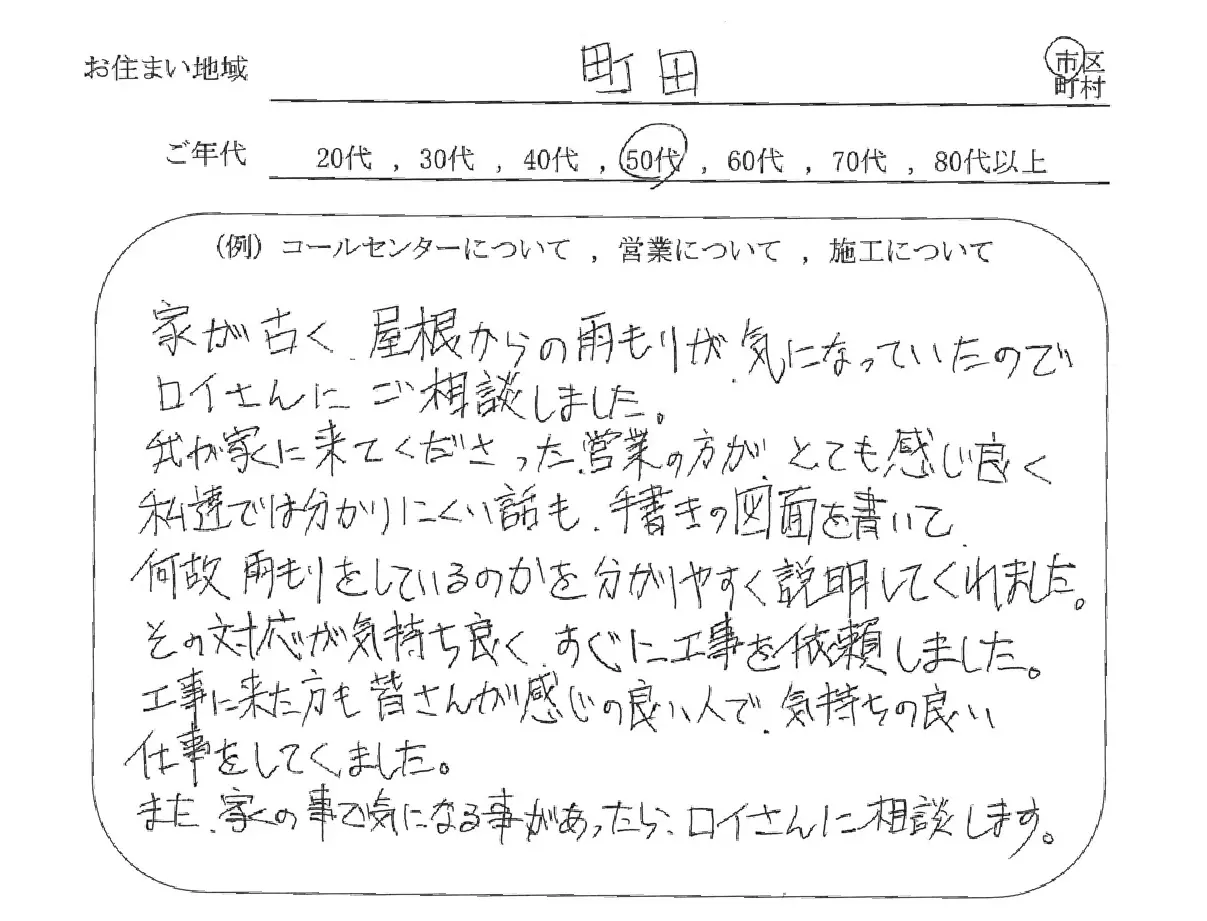 お住まい地域 町田 市区
町村
ご年代 20代 , 30代 , 40代 , 50代 , 60代 , 70代 , 80代以上
(例) コールセンターについて , 営業について , 施工について
家が古く、屋根からの雨もりが、気になっていたので
ロイさんに ご相談しました。
我が家に来てくださった、営業の方が、とても感じ良く
私達では分かりにくい話も、手書きの図面を書いて、
何故 雨もりをしているのかを分かりやすく説明してくれました。
その対応が気持ち良く、すぐに工事を依頼しました。
工事に来た方も皆さんが感じの良い人で、気持ちの良い
仕事をしてくました。
また、家の事で気になる事があったら、ロイさんに相談します。